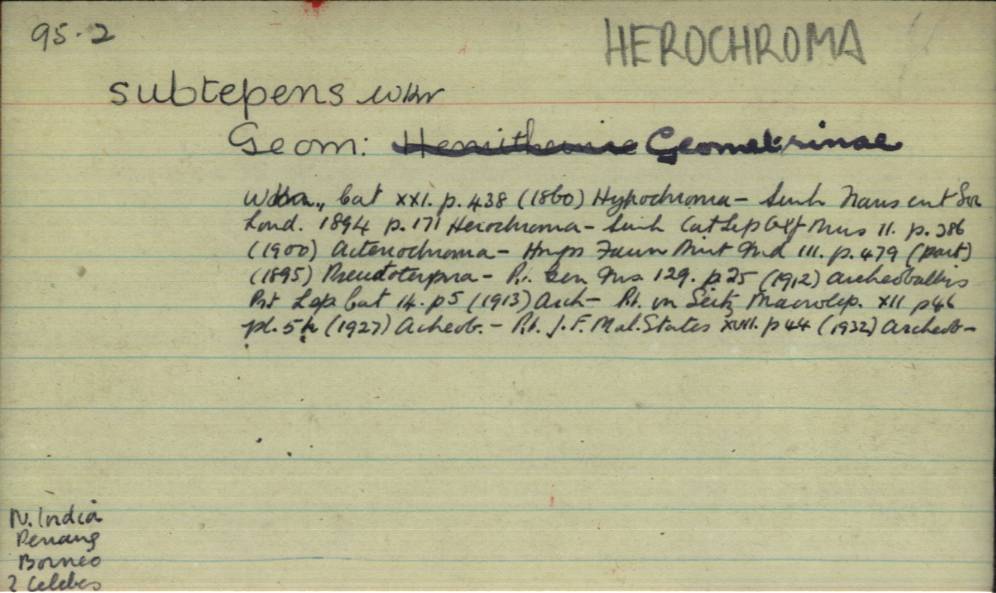 95.2
HEROCHROMA
subtepens Wkr
Geom: Hemitheinae Geometrinae
Cat XXI. p. 438 (1860) Hypochroma - Swinh Trans ent Soc
Lond. 1894 p. 171 Herochroma - Swinh Cat Lep Oxf Mus II. p. 386
(1900) Actenochroma - Hmps Faun Brit Ind III. p. 479 (part)
(1895) Pseudoterpna - Pr. Gen Ins 129. p 25 (1912) Archeobalbis
Prt Lep Cat 14. p 5 (1913) Arch - Pt. in Seitz Macrolep. XII p 46
pl. 5h (1927) Acheob. - Pt. J. F. Mal. States XVII. p 44 (1932) Archeob -
N. India
Penang
Borneo
? Celebes